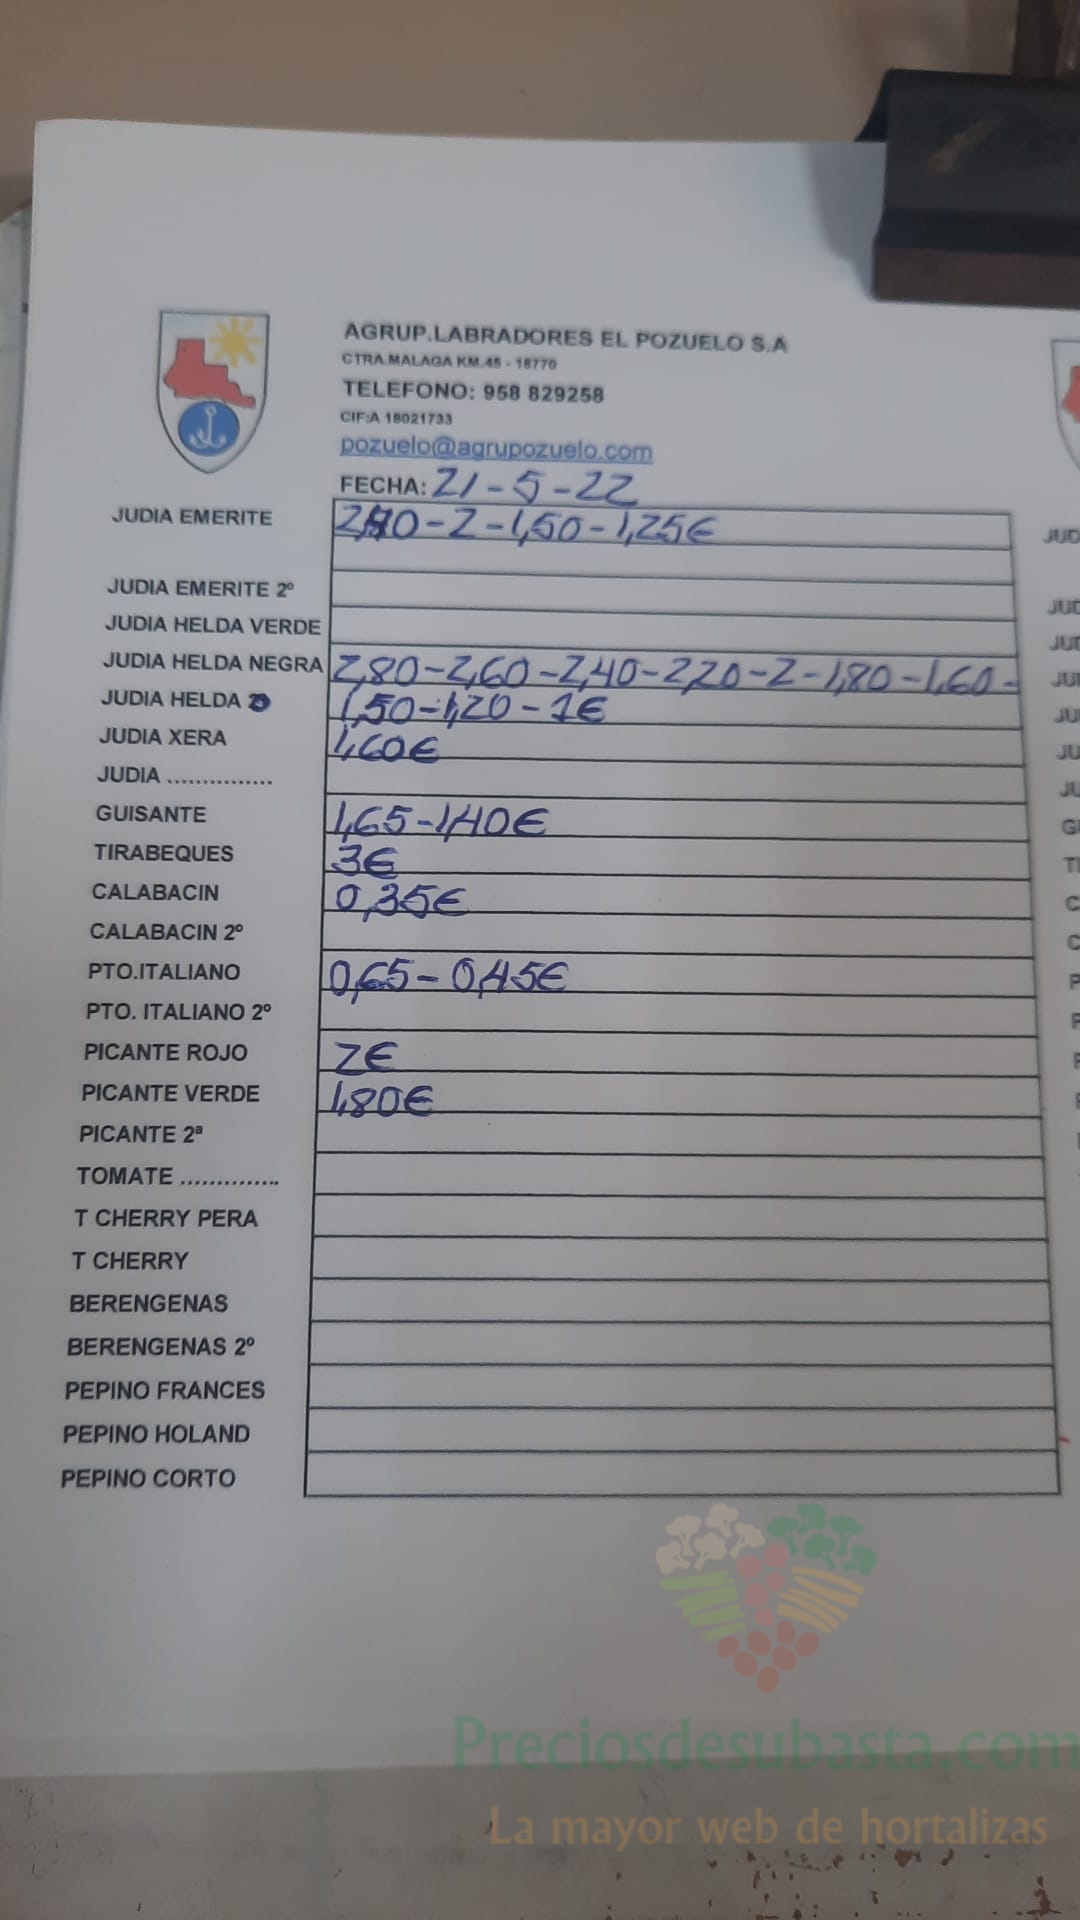 AGRUP.LABRADORES EL POZUELO S.A
CTRA.MALAGA KM.45 - 18770
TELEFONO: 958 829258
CIF:A 18021733
pozuelo@agrupozuelo.com
FECHA: 21-5-22
JUDIA EMERITE 2,40-2-1,50-1,25€
JUDIA EMERITE 2º
JUDIA HELDA VERDE
JUDIA HELDA NEGRA 2,80-2,60-2,40-2,20-2-1,80-1,60-
JUDIA HELDA 1,50-1,20-1€
JUDIA XERA 1,60€
JUDIA ...............
GUISANTE 1,65-1,40€
TIRABEQUES 3€
CALABACIN 0,35€
CALABACIN 2º
PTO.ITALIANO 0,65-0,45€
PTO. ITALIANO 2º
PICANTE ROJO 2€
PICANTE VERDE 1,80€
PICANTE 2ª
TOMATE ..............
T CHERRY PERA
T CHERRY
BERENGENAS
BERENGENAS 2º
PEPINO FRANCES
PEPINO HOLAND
PEPINO CORTO
Preciosdesubasta.com
La mayor web de hortalizas